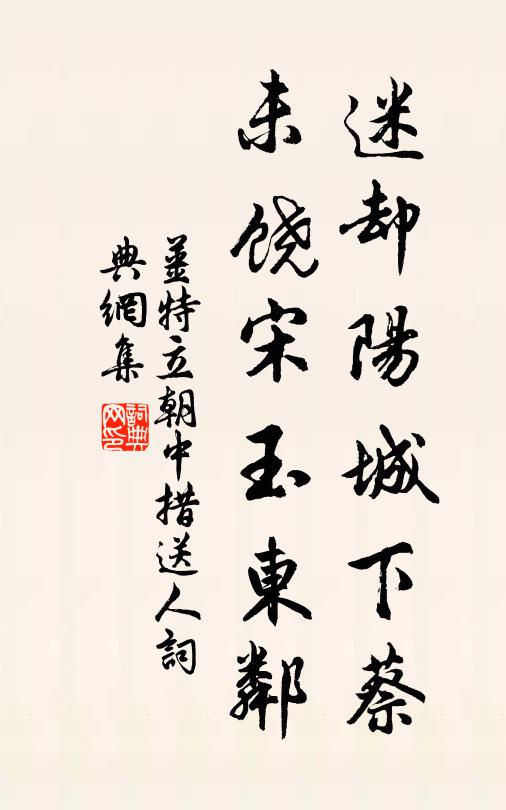 迷却陽城下蔡
未饒宋玉東鄰
薑特立朝中措送人詞
典網集
詞典網印